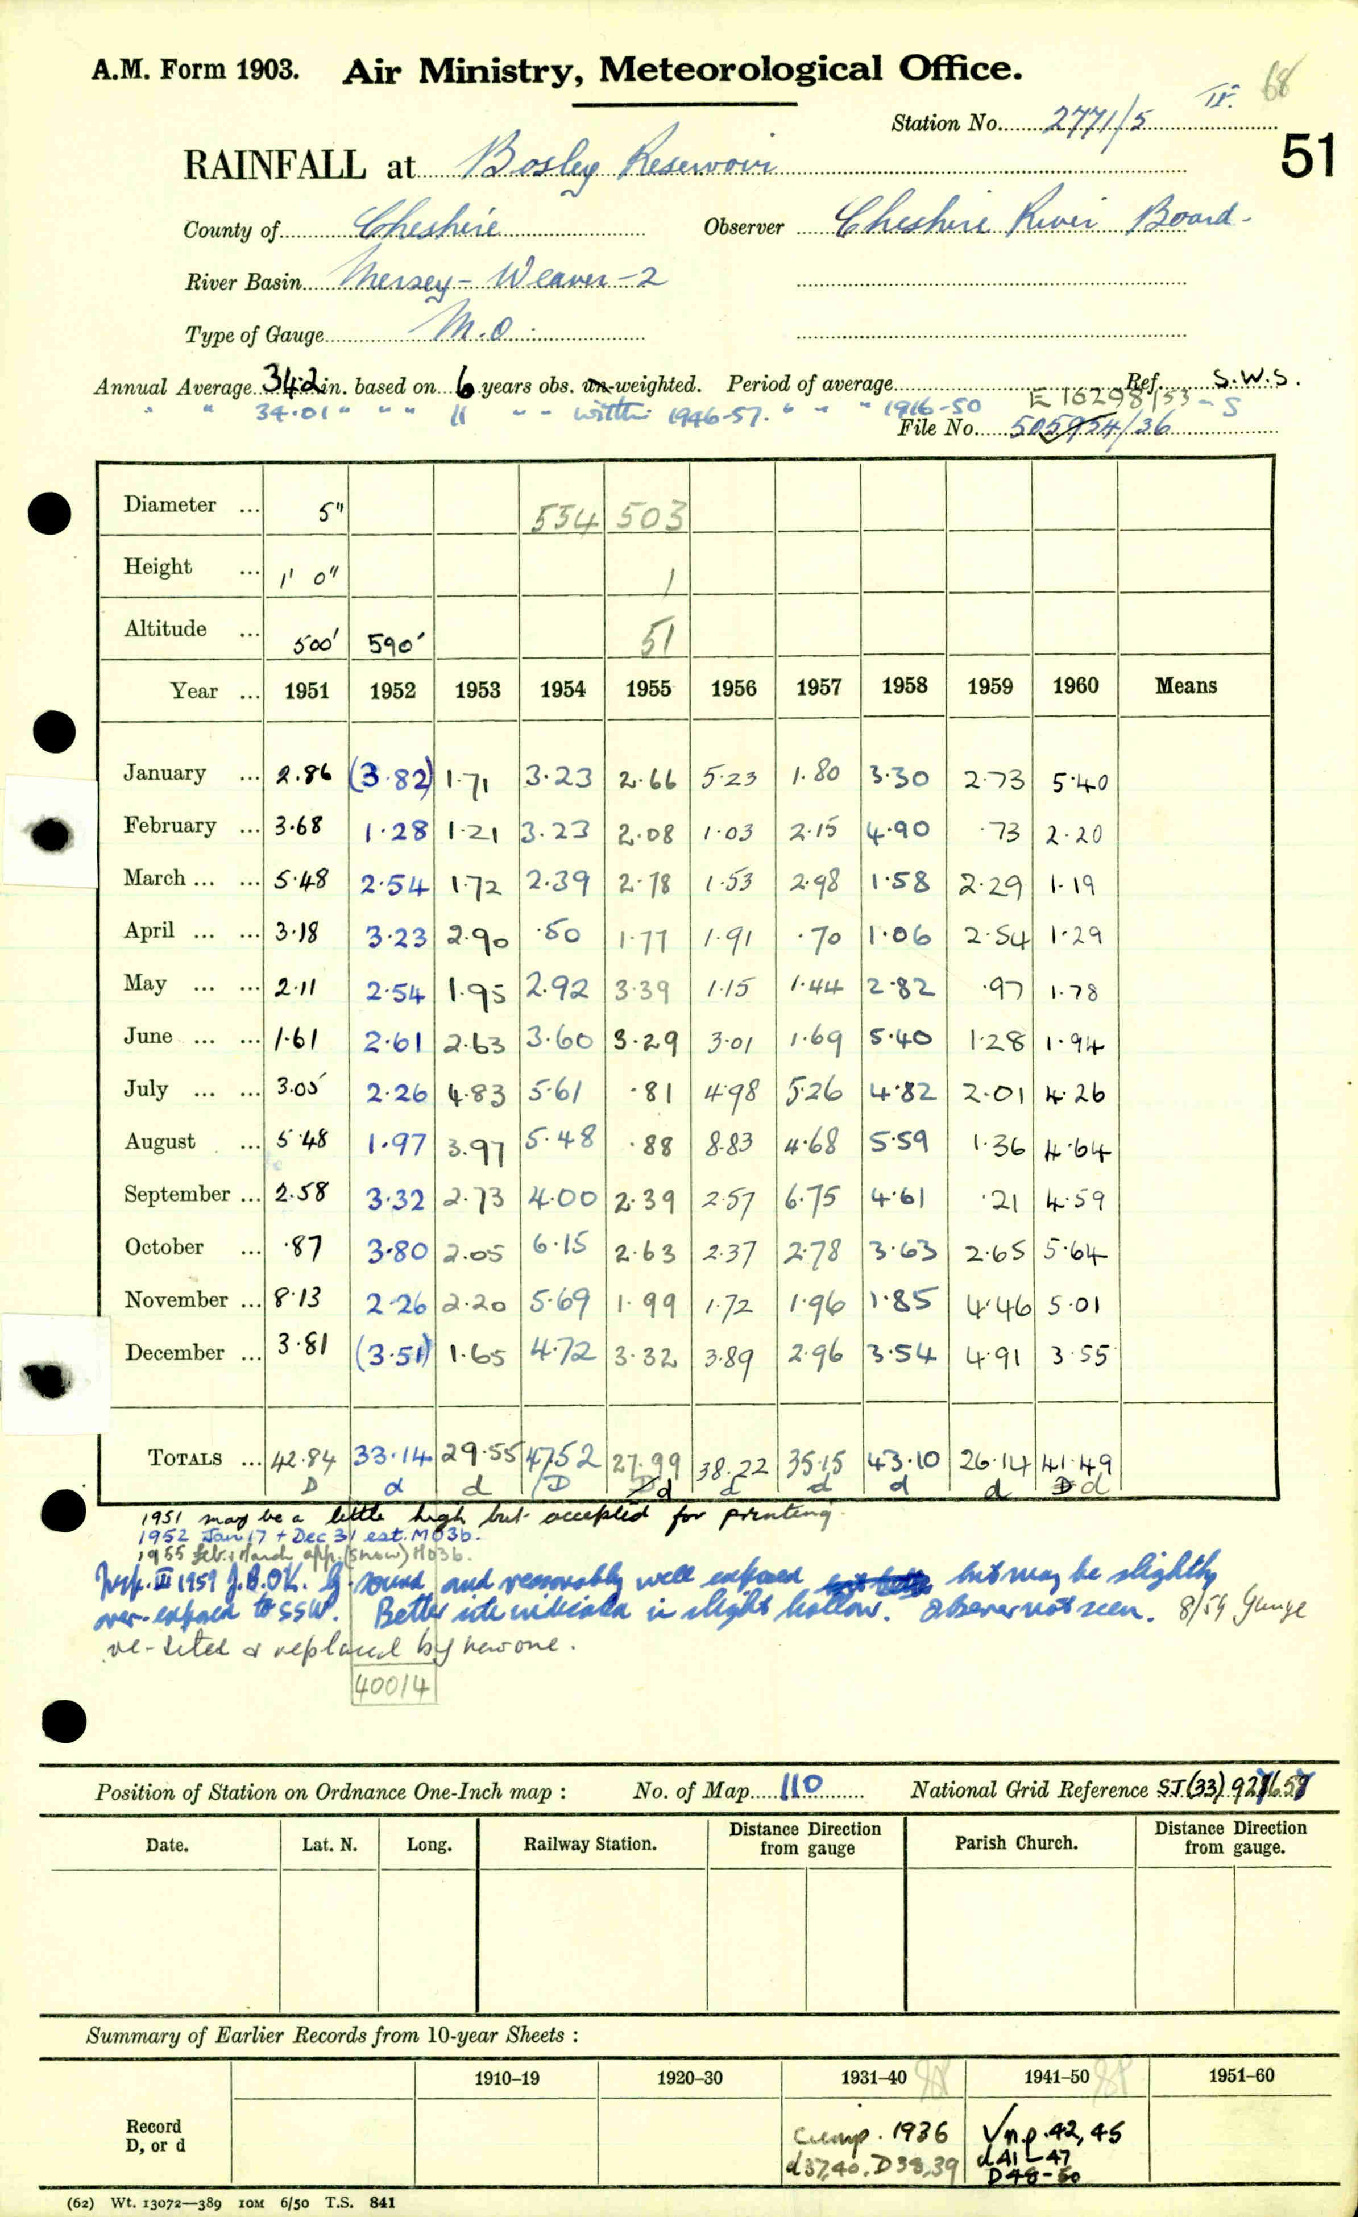 A.M. Form 1903. Air Ministry, Meteorological Office.
68
Station No. 2771/5
51
RAINFALL at Bosley Reservoir
County of Cheshire Observer Cheshire River Board
River Basin Mersey - Weaver - 2
Type of Gauge M.O.
Annual Average 34.2 in. based on 6 years obs. un-weighted. Period of average Ref. S.W.S.
" " 34.01 " " " 11 " " within 1946-57. " " " 1916-50 E 16298/53 - S
File No. 505954/36
Diameter ... 5" 554 503
Height ... 1' 0" 1
Altitude ... 500' 590' 51
Year ... 1951 1952 1953 1954 1955 1956 1957 1958 1959 1960 Means
January ... 2.86 (3.82) 1.71 3.23 2.66 5.23 1.80 3.30 2.73 5.40
February ... 3.68 1.28 1.21 3.23 2.08 1.03 2.15 4.90 .73 2.20
March ... ... 5.48 2.54 1.72 2.39 2.78 1.53 2.98 1.58 2.29 1.19
April ... ... 3.18 3.23 2.90 .50 1.77 1.91 .70 1.06 2.54 1.29
May ... ... 2.11 2.54 1.95 2.92 3.39 1.15 1.44 2.82 .97 1.78
June ... ... 1.61 2.61 2.63 3.60 3.29 3.01 1.69 5.40 1.28 1.94
July ... ... 3.05 2.26 4.83 5.61 .81 4.98 5.26 4.82 2.01 4.26
August ... 5.48 1.97 3.97 5.48 .88 8.83 4.68 5.59 1.36 4.64
September ... 2.58 3.32 2.73 4.00 2.39 2.57 6.75 4.61 .21 4.59
October ... .87 3.80 2.05 6.15 2.63 2.37 2.78 3.63 2.65 5.64
November ... 8.13 2.26 2.20 5.69 1.99 1.72 1.96 1.85 4.46 5.01
December ... 3.81 (3.51) 1.65 4.72 3.32 3.89 2.96 3.54 4.91 3.55
TOTALS ... 42.84 33.14 29.55 47.52 27.99 38.22 35.15 43.10 26.14 41.49
D d d D D d d d d d D d
1951 may be a little high but accepted for printing.
1952 Jan 17 + Dec 31 est. MO3b.
1955 Feb. & March app. (snow) MO3b.
Insp. III 1959 J.B. OK. G sound and reasonably well exposed but may be slightly
over-exposed to SSW. Better site indicated in slight hollow. Observer not seen. 8/59 Gauge
re-sited & replaced by new one.
400/4
Position of Station on Ordnance One-Inch map : No. of Map 110 National Grid Reference SJ (33)
Date. Lat. N. Long. Railway Station. Distance Direction from gauge Parish Church. Distance Direction from gauge.
Summary of Earlier Records from 10-year Sheets :
1910-19 1920-30 1931-40 1941-50 1951-60
Record D, or d
comp. 1936 √ n.p. 42, 45
d37,40. D38,39 d41-47
D48-50
(62) Wt. 13072—389 10M 6/50 T.S. 841